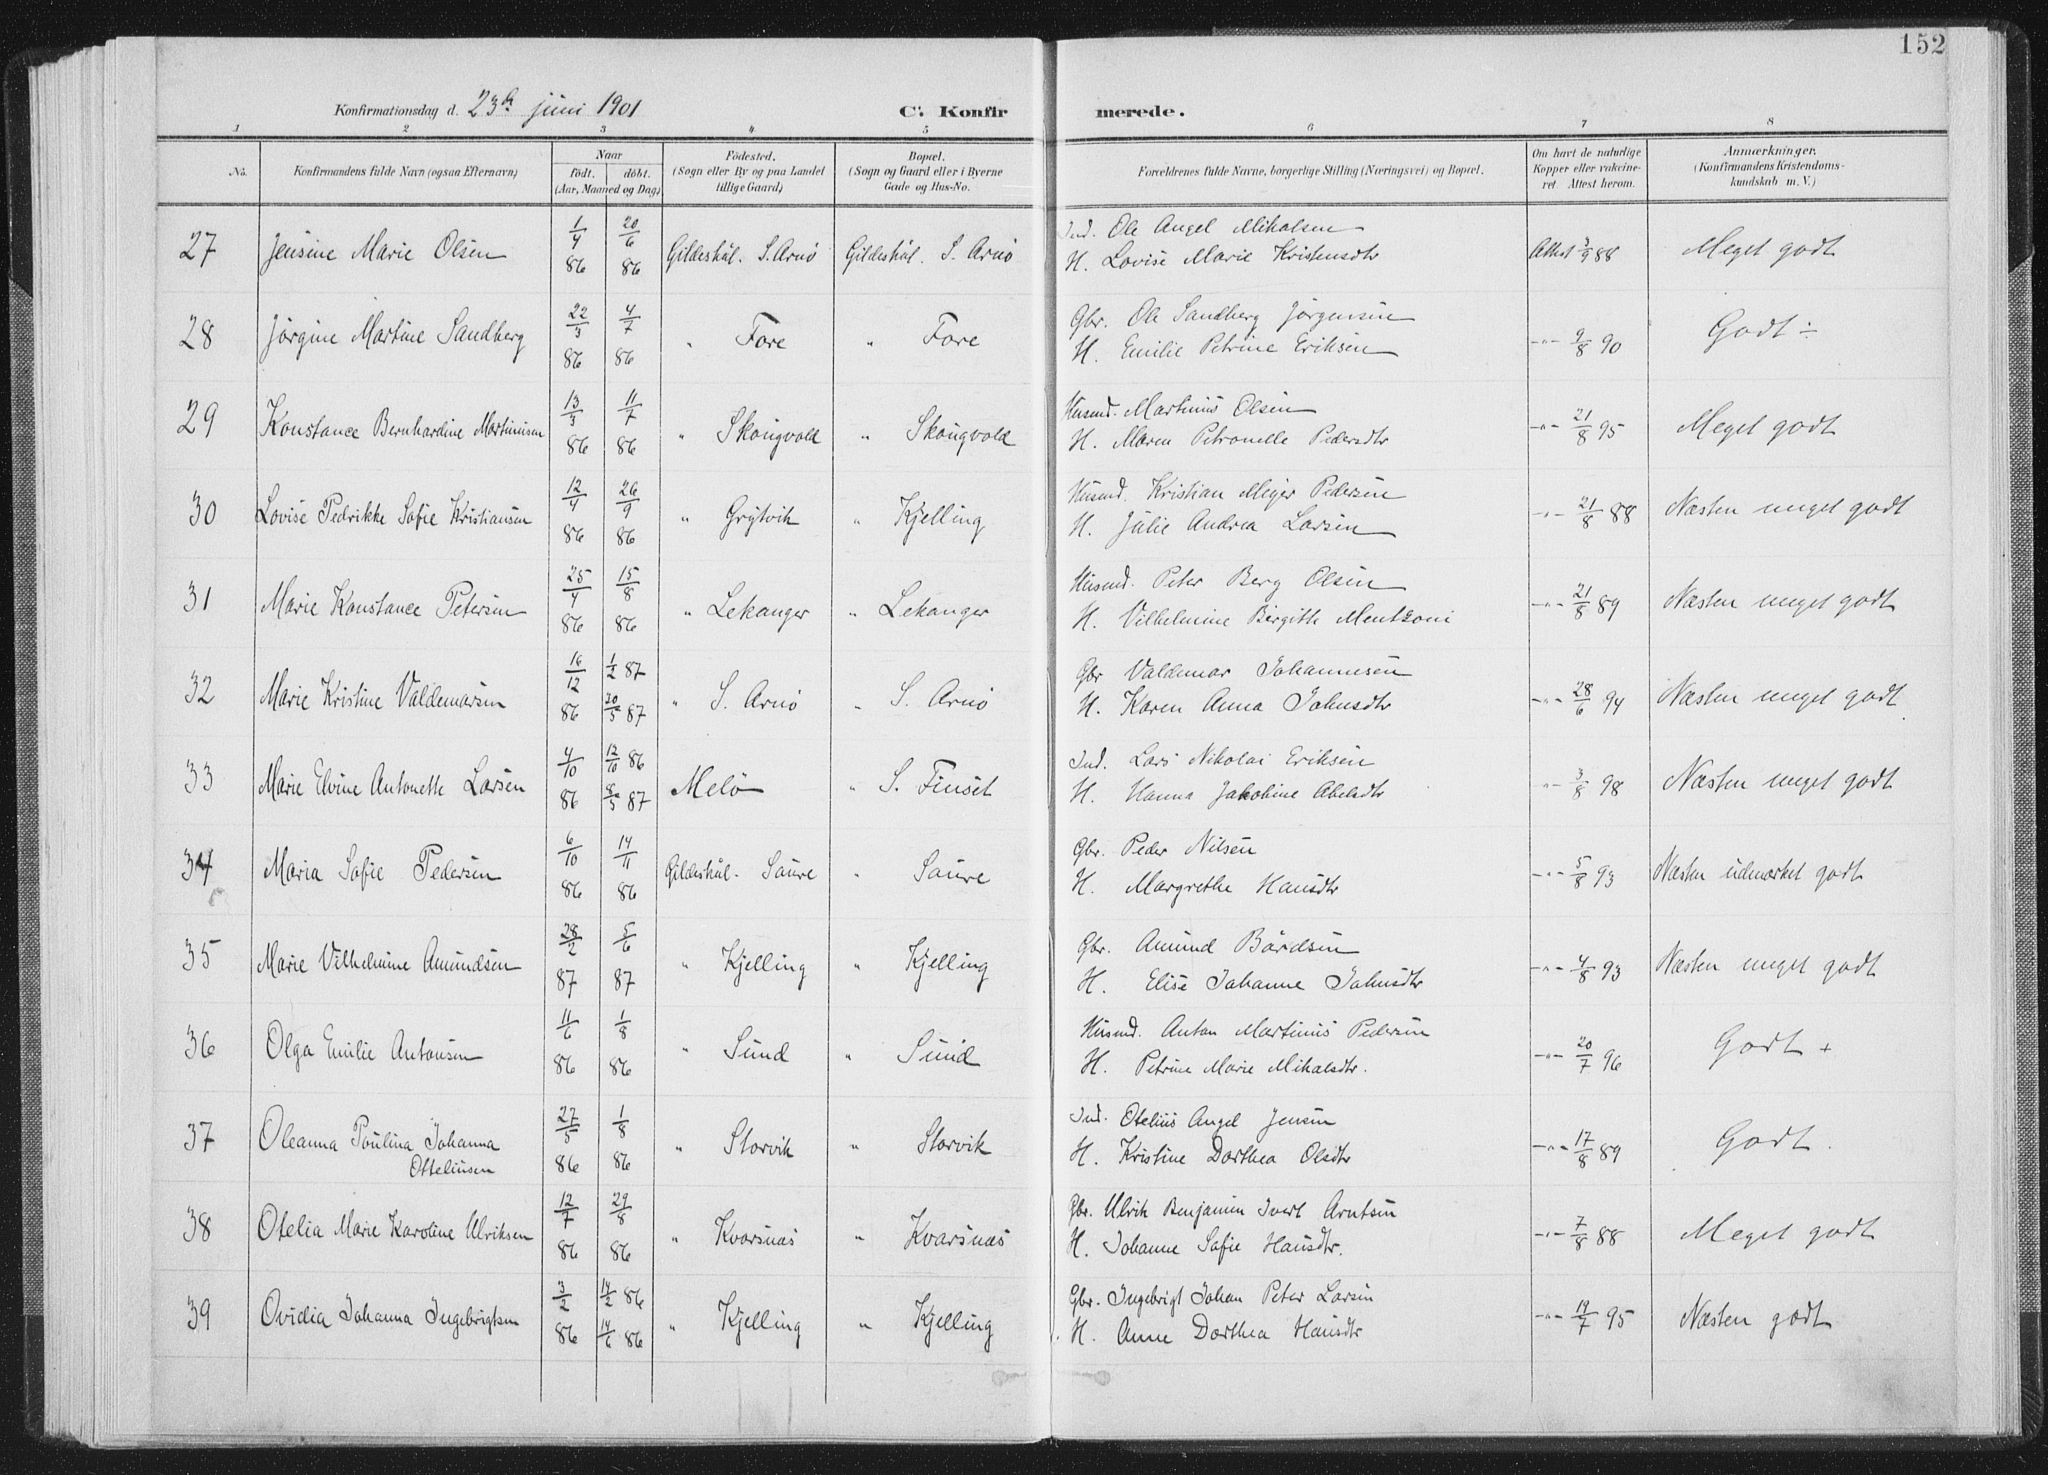 152
Konfirmationsdag d. 23de juni 1901
C. Konfirmerede.
1 2 3 4 5 6 7 8
No. Konfirmandens fulde Navn (ogsaa Efternavn) Naar født. døbt. (Aar, Maaned og Dag) Fødested. (Sogn eller By og paa Landet tillige Gaard) Bopæl. (Sogn og Gaard eller i Byerne Gade og Hus-No. Forældrenes fulde Navne, borgerlige Stilling (Næringsvei) og Bopæl. Om havt de naturlige Kopper eller vakcineret Attest herom. Anmærkninger. (Konfirmandens Kristendomskundskab m. V.)
27 Jensine Marie Olsen 1/4 86 20/6 86 Gildeskål. S. Arnö Gildeskål. S. Arnö Ind. Ole Angel Mikalsen Attest 3/9 88 Meget godt
H. Lovise Marie Kristensdtr
28 Jørgine Martine Sandberg 22/3 86 4/7 86 " Fore " Fore Gbr. Ole Sandberg Jørgensen -"- 9/8 90 Godt ÷
H. Emilie Petrine Eriksen
29 Konstance Bernhardine Martinusen 13/3 86 11/7 86 " Skaugvold " Skaugvold Husmd. Martinus Olsen -"- 21/8 95 Meget godt
H. Maren Petronelle Pedersdtr
30 Lovise Pedrikke Sofie Kristiansen 12/4 86 26/9 86 " Grytvik " Kjelling Husmd. Kristian Mejer Pedersen -"- 21/8 88 Næsten meget godt
H. Julie Andrea Larsen
31 Marie Konstance Petersen 25/4 86 15/8 86 " Lekanger " Lekanger Husmd. Peter Berg Olsen -"- 21/8 89 Næsten meget godt
H. Vilhelmine Birgitte Mentzoni
32 Marie Kristine Valdemarsen 16/12 86 1/2 87 30/5 87 " S. Arnö " S. Arnö Gbr Valdemar Johannesen -"- 28/6 94 Næsten meget godt
H. Karen Anna Johnsdtr
33 Marie Elvine Antonette Larsen 4/10 86 12/10 86 8/5 87 Melö " S. Finset Ind. Lars Nikolai Eriksen -"- 3/8 98 Næsten meget godt
H. Hanna Jakobine Abelsdtr
34 Maria Sofie Pedersen 6/10 86 14/11 86 Gildeskål. Saure " Saure Gbr. Peder Nilsen -"- 5/8 93 Næsten udmærket godt
H. Margrethe Hansdtr
35 Marie Vilhelmine Amundsen 28/2 87 5/6 87 " Kjelling " Kjelling Gbr. Amund Bårdsen -"- 4/8 93 Næsten meget godt
H. Elise Johanne Johnsdtr
36 Olga Emilie Antonsen 11/6 86 1/8 86 " Sund " Sund Husmd. Anton Martinus Pedersen -"- 20/7 96 Godt +
H. Petrine Marie Mikalsdtr.
37 Oleanna Poulina Johanna Ottelinsen 27/5 86 1/8 86 " Storvik " Storvik Ind. Otelius Angel Jensen -"- 17/8 89 Godt.
H. Kristine Dorthea Olsdtr
38 Otelia Marie Karoline Ulriksen 12/7 86 29/8 86 " Kvarsnæs " Kvarsnæs Gbr. Ulrik Benjamin Ivert Arntsen -"- 7/8 88 Meget godt
H. Johanne Sofie Hansdtr.
39 Ovidia Johanna Ingebrigtsen 3/2 86 14/2 86 14/6 86 " Kjelling " Kjelling Gbr. Ingebrigt Johan Peter Larsen -"- 19/7 95 Næsten godt
H. Anne Dorthea Hansdtr